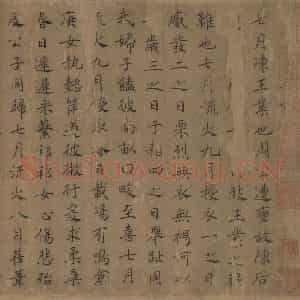 七月陳王業也周公遭變故陳后
致王業之艱
難也七月流火九月授衣一之日
觱發二之日栗烈無衣無褐何以
歲三之日于耜四之日舉趾同
我婦子饁彼南畝田畯至喜七月
流火九月授衣春日載陽有鳴倉
庚女執懿筐遵彼微行爰求柔桑
春日遲遲采蘩祁祁女心傷悲殆
及公子同歸七月流火八月萑葦
Shufawang.CN